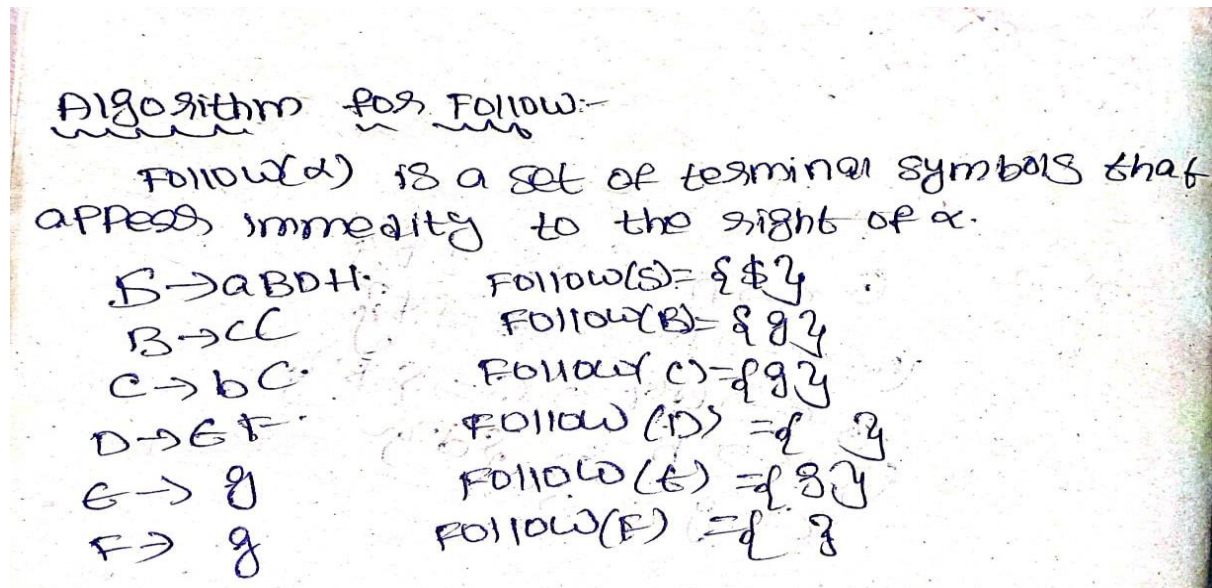 Algorithm for Follow:-
Follow(α) is a set of terminal symbols that
appears immedity to the right of α.
S→aBDH. Follow(S)={$}
B→cC Follow(B)={g}
C→bC. Follow(C)={g}
D→EF. Follow(D)={ }
E→g Follow(E)={g}
F→g Follow(F)={ }